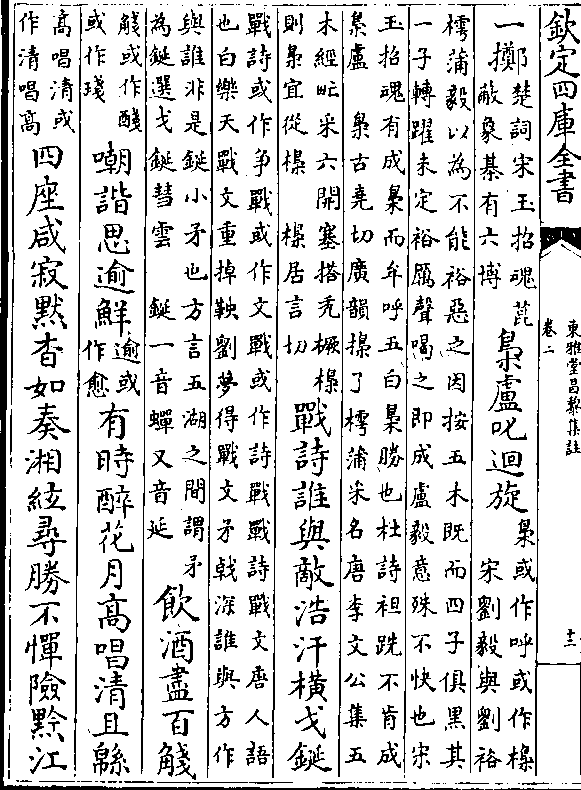 欽定四庫全書
東雅堂昌黎集註
卷二
十二
一擲
楚詞宋玉招魂菎
蔽象棊有六博
梟盧叱迴旋
梟或作呼或作橾
宋劉毅與劉裕
樗蒲毅以為不能裕惡之因按五木既而四子俱黑其
一子轉躍未定裕厲聲喝之即成盧毅意殊不快也宋
玉招魂有成梟而牟呼五白梟勝也杜詩袒跣不肯成
梟盧　梟古堯切廣韻橾了樗蒲采名唐李文公集五
木經采六開塞搭禿橛橾
則梟宜從橾　橾居言切
戰詩誰與敵浩汗橫戈鋋
戰詩或作爭戰或作文戰或作詩戰戰詩戰文唐人語
也白樂天戰文重掉鞅劉夢得戰文矛戟深誰與方作
與誰非是鋋小矛也方言五湖之間謂矛
為鋋選戈鋋彗雲　鋋一音蟬又音延
飲酒盡百
或作醆
或作琖
嘲諧思逾鮮
逾或
作愈
有時醉花月高唱清且緜
高唱清或
作清唱高
四座咸寂默杳如奏湘絃尋勝不憚險黔江